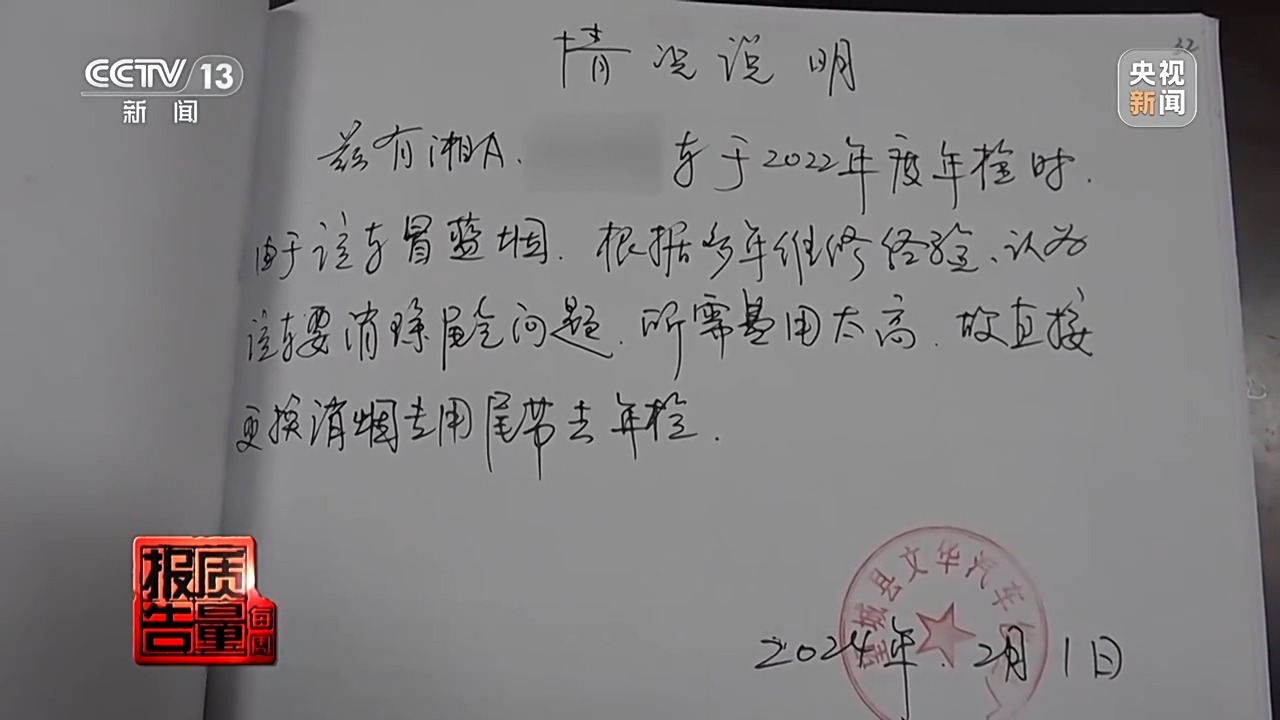 CCTV 13
新闻
央视
新闻
情况说明
兹有湘A. 车于2022年度年检时.
由于该车冒蓝烟.根据多年维修经验、认为
该车要消除尾气问题.所需费用太高.故直接
更换消烟专用尾带去年检.
望城县文华汽车
2024年.2月1日
每周
质量
报告